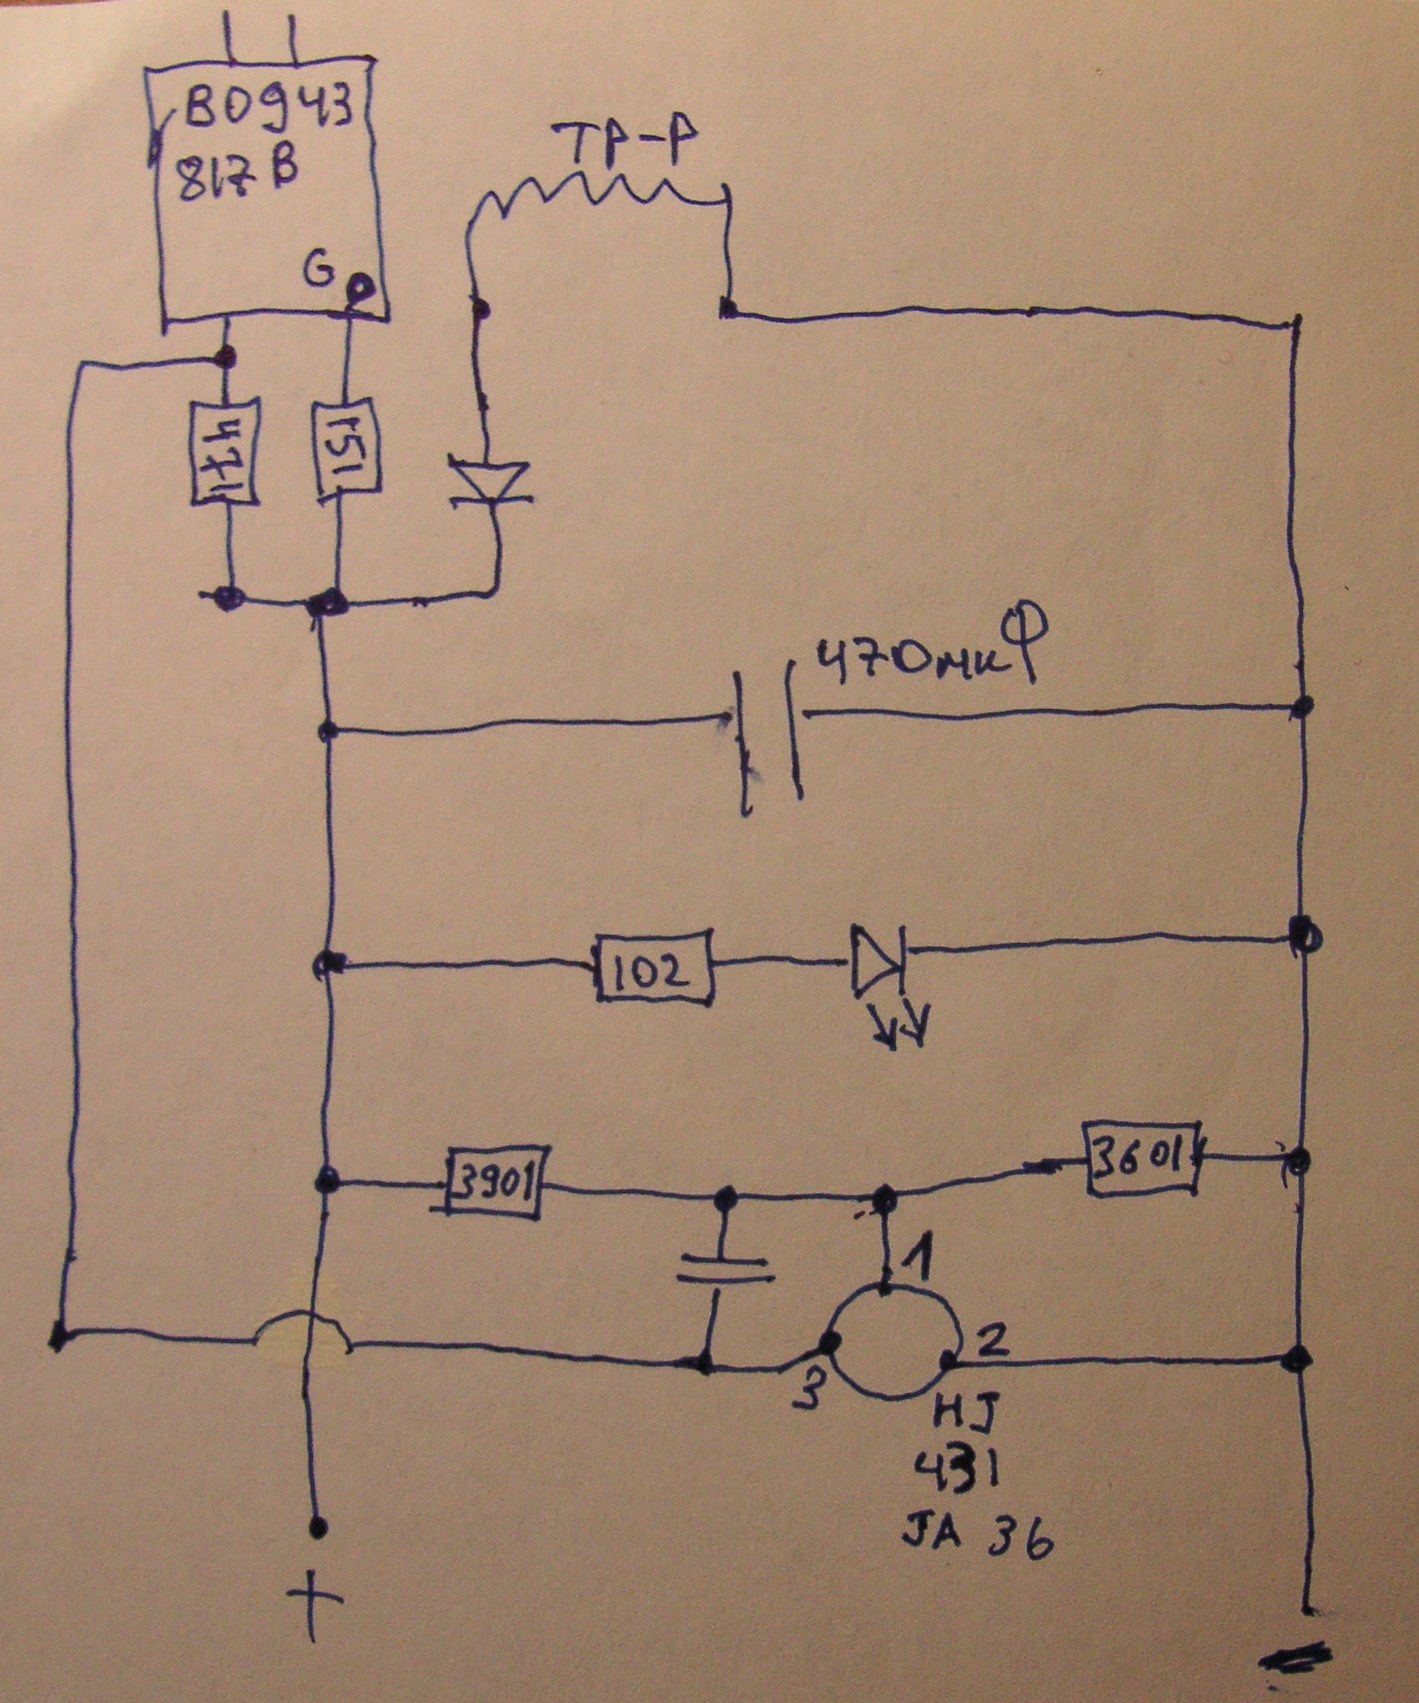 B0943
817B
G
TP-P
471
151
470мкФ
102
3901
3601
1
2
3
HJ
431
JA 36
+
-